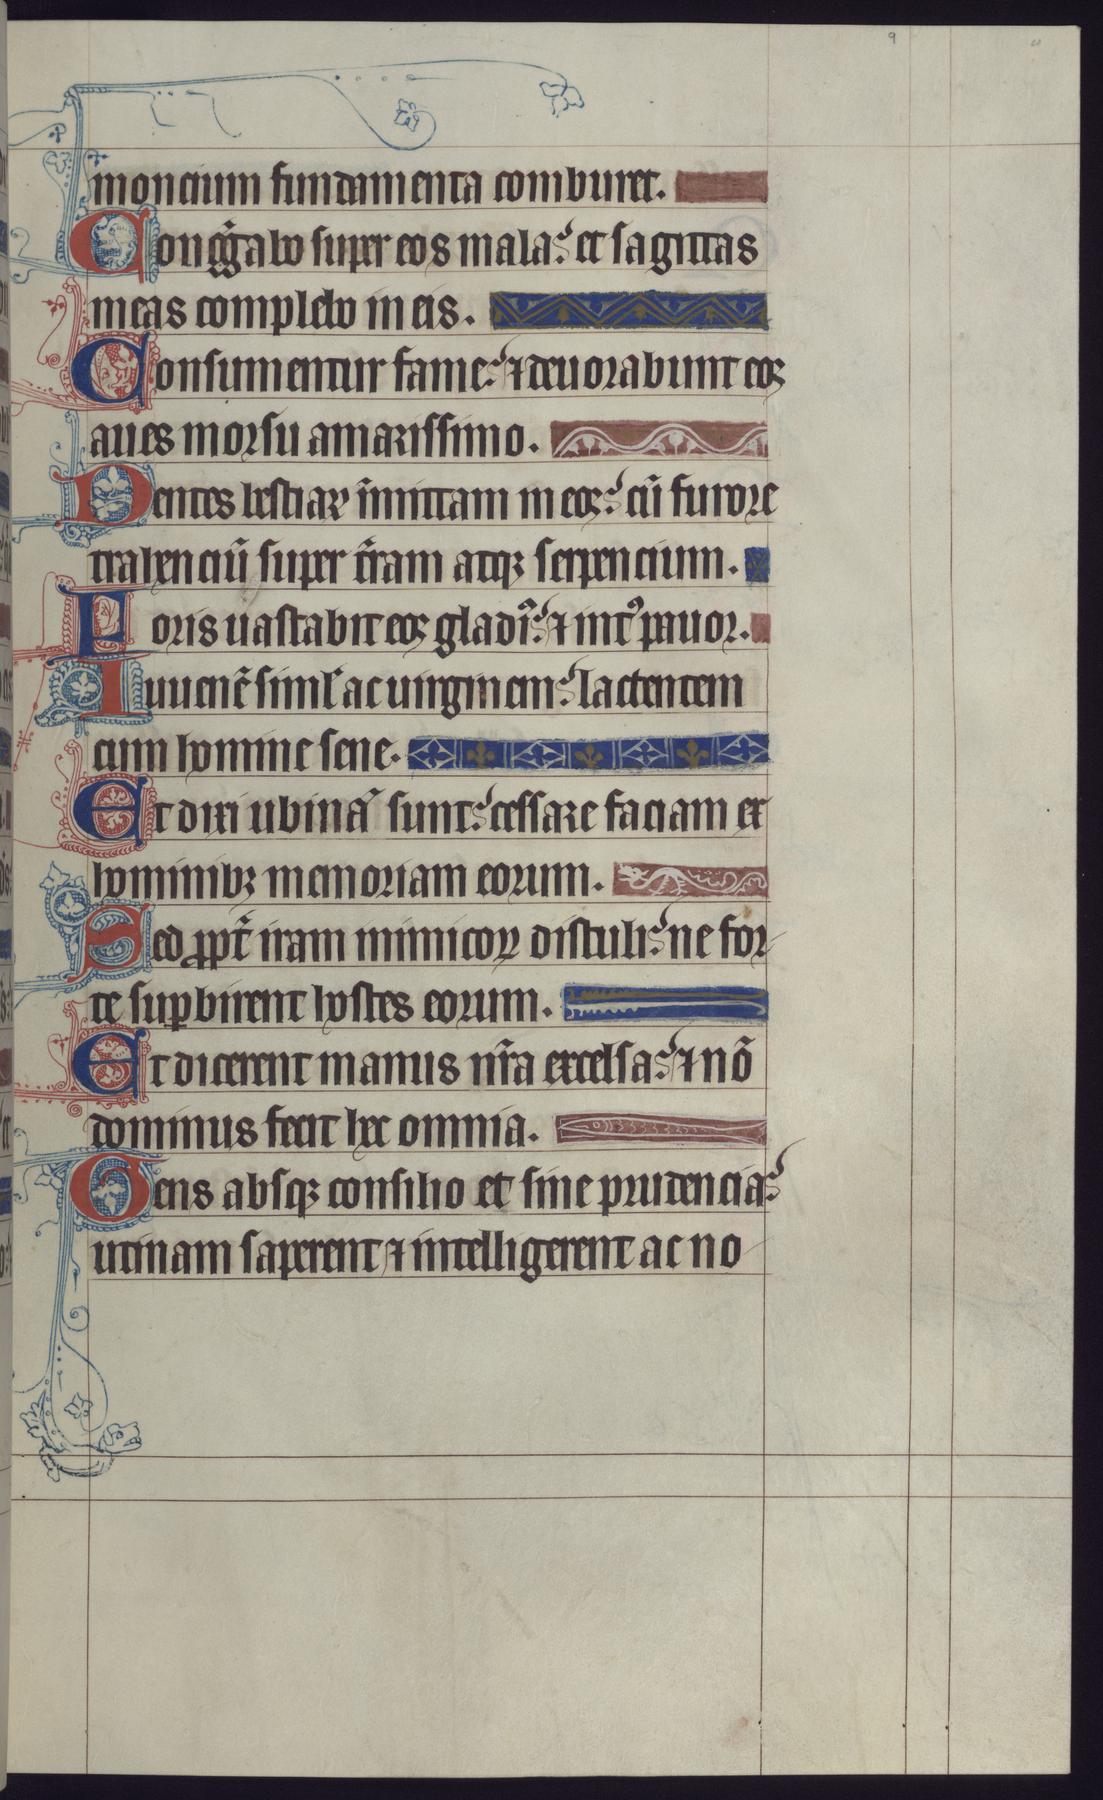 9
moncium fundamenta comburet.
Congᷓgabo super eos mala: et sagittas
meas complebo in eis.
Consumentur fame: ⁊ deuorabunt eos
aues morsu amarissimo.
Dentes bestiaꝝ īmittam in eos: cū furore
trahenciū super t̄ram atqꝫ serpencium.
Foris uastabit eos gladiꝰ: ⁊ intꝰ pauor.
Iuuenē simł ac uirginem: lactentem
cum homine sene.
Et dixi ubinā sunt: cessare faciam ex
hominibꝫ memoriam eorum.
Sed ꝓpt̄ iram inimicoꝝ distuli: ne for
te suꝑbirent hostes eorum.
Et dicerent manus nr̄a excelsa: ⁊ nō
dominus fecit hec omnia.
Gens absqꝫ consilio et sine prudencia:
utinam saperent ⁊ intelligerent ac no